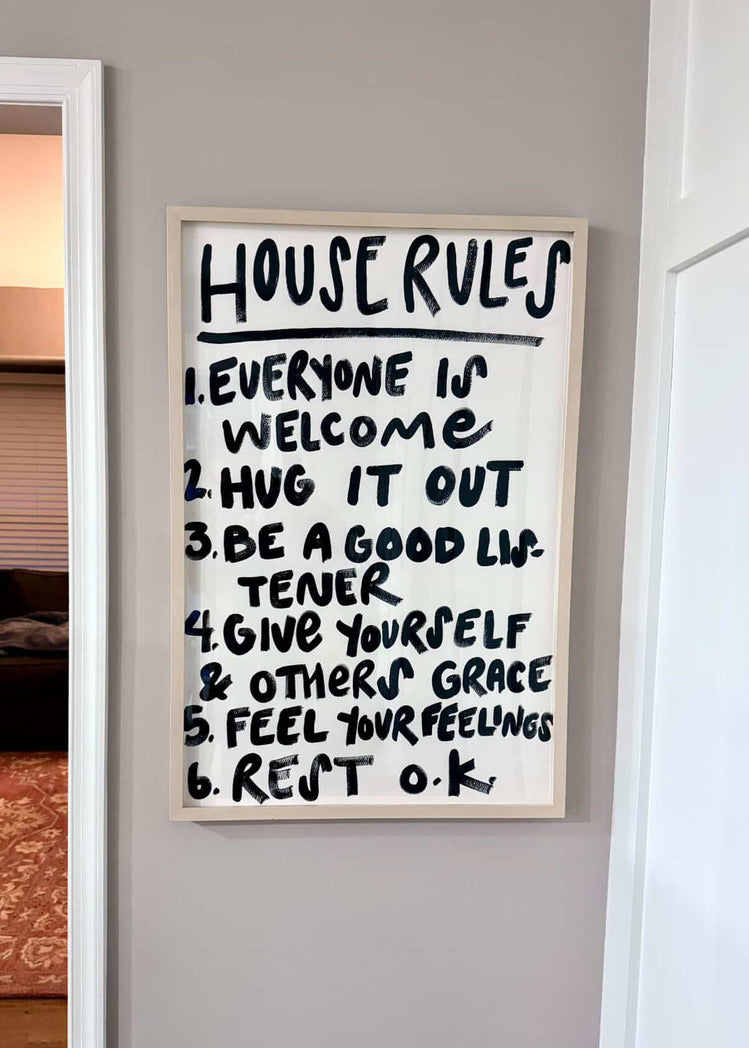 HOUSE RULES
1. EVERYONE IS
WELCOME
2. HUG IT OUT
3. BE A GOOD LIS-
TENER
4. GIVE YOURSELF
& OTHERS GRACE
5. FEEL YOUR FEELINGS
6. REST O.K.